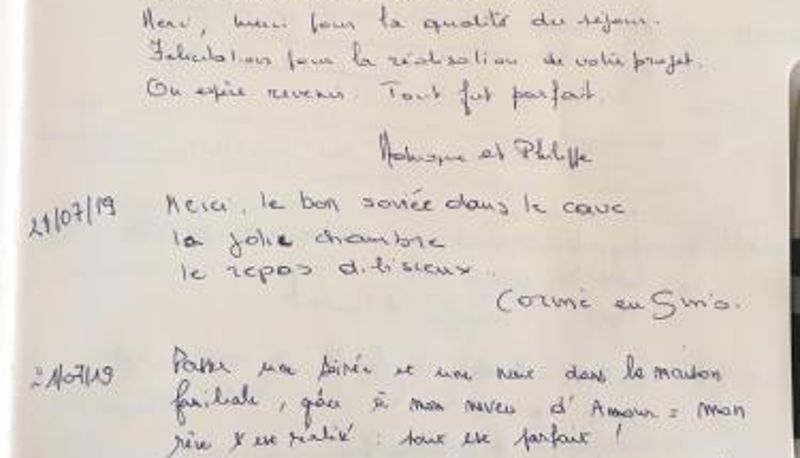 Merci, merci pour la qualité du séjour.
Félicitations pour la réalisation de votre projet.
On espère revenir. Tout fut parfait.
et Philippe
21/07/19 Merci, le bon soirée dans le cave
la jolie chambre
le repos dilisieux..
en
21/07/19 Passer une soirée et une nuit dans la maison
familiale, grâce à mon neveu d'Amour = mon
rêve s'est réalisé : tout est parfait !